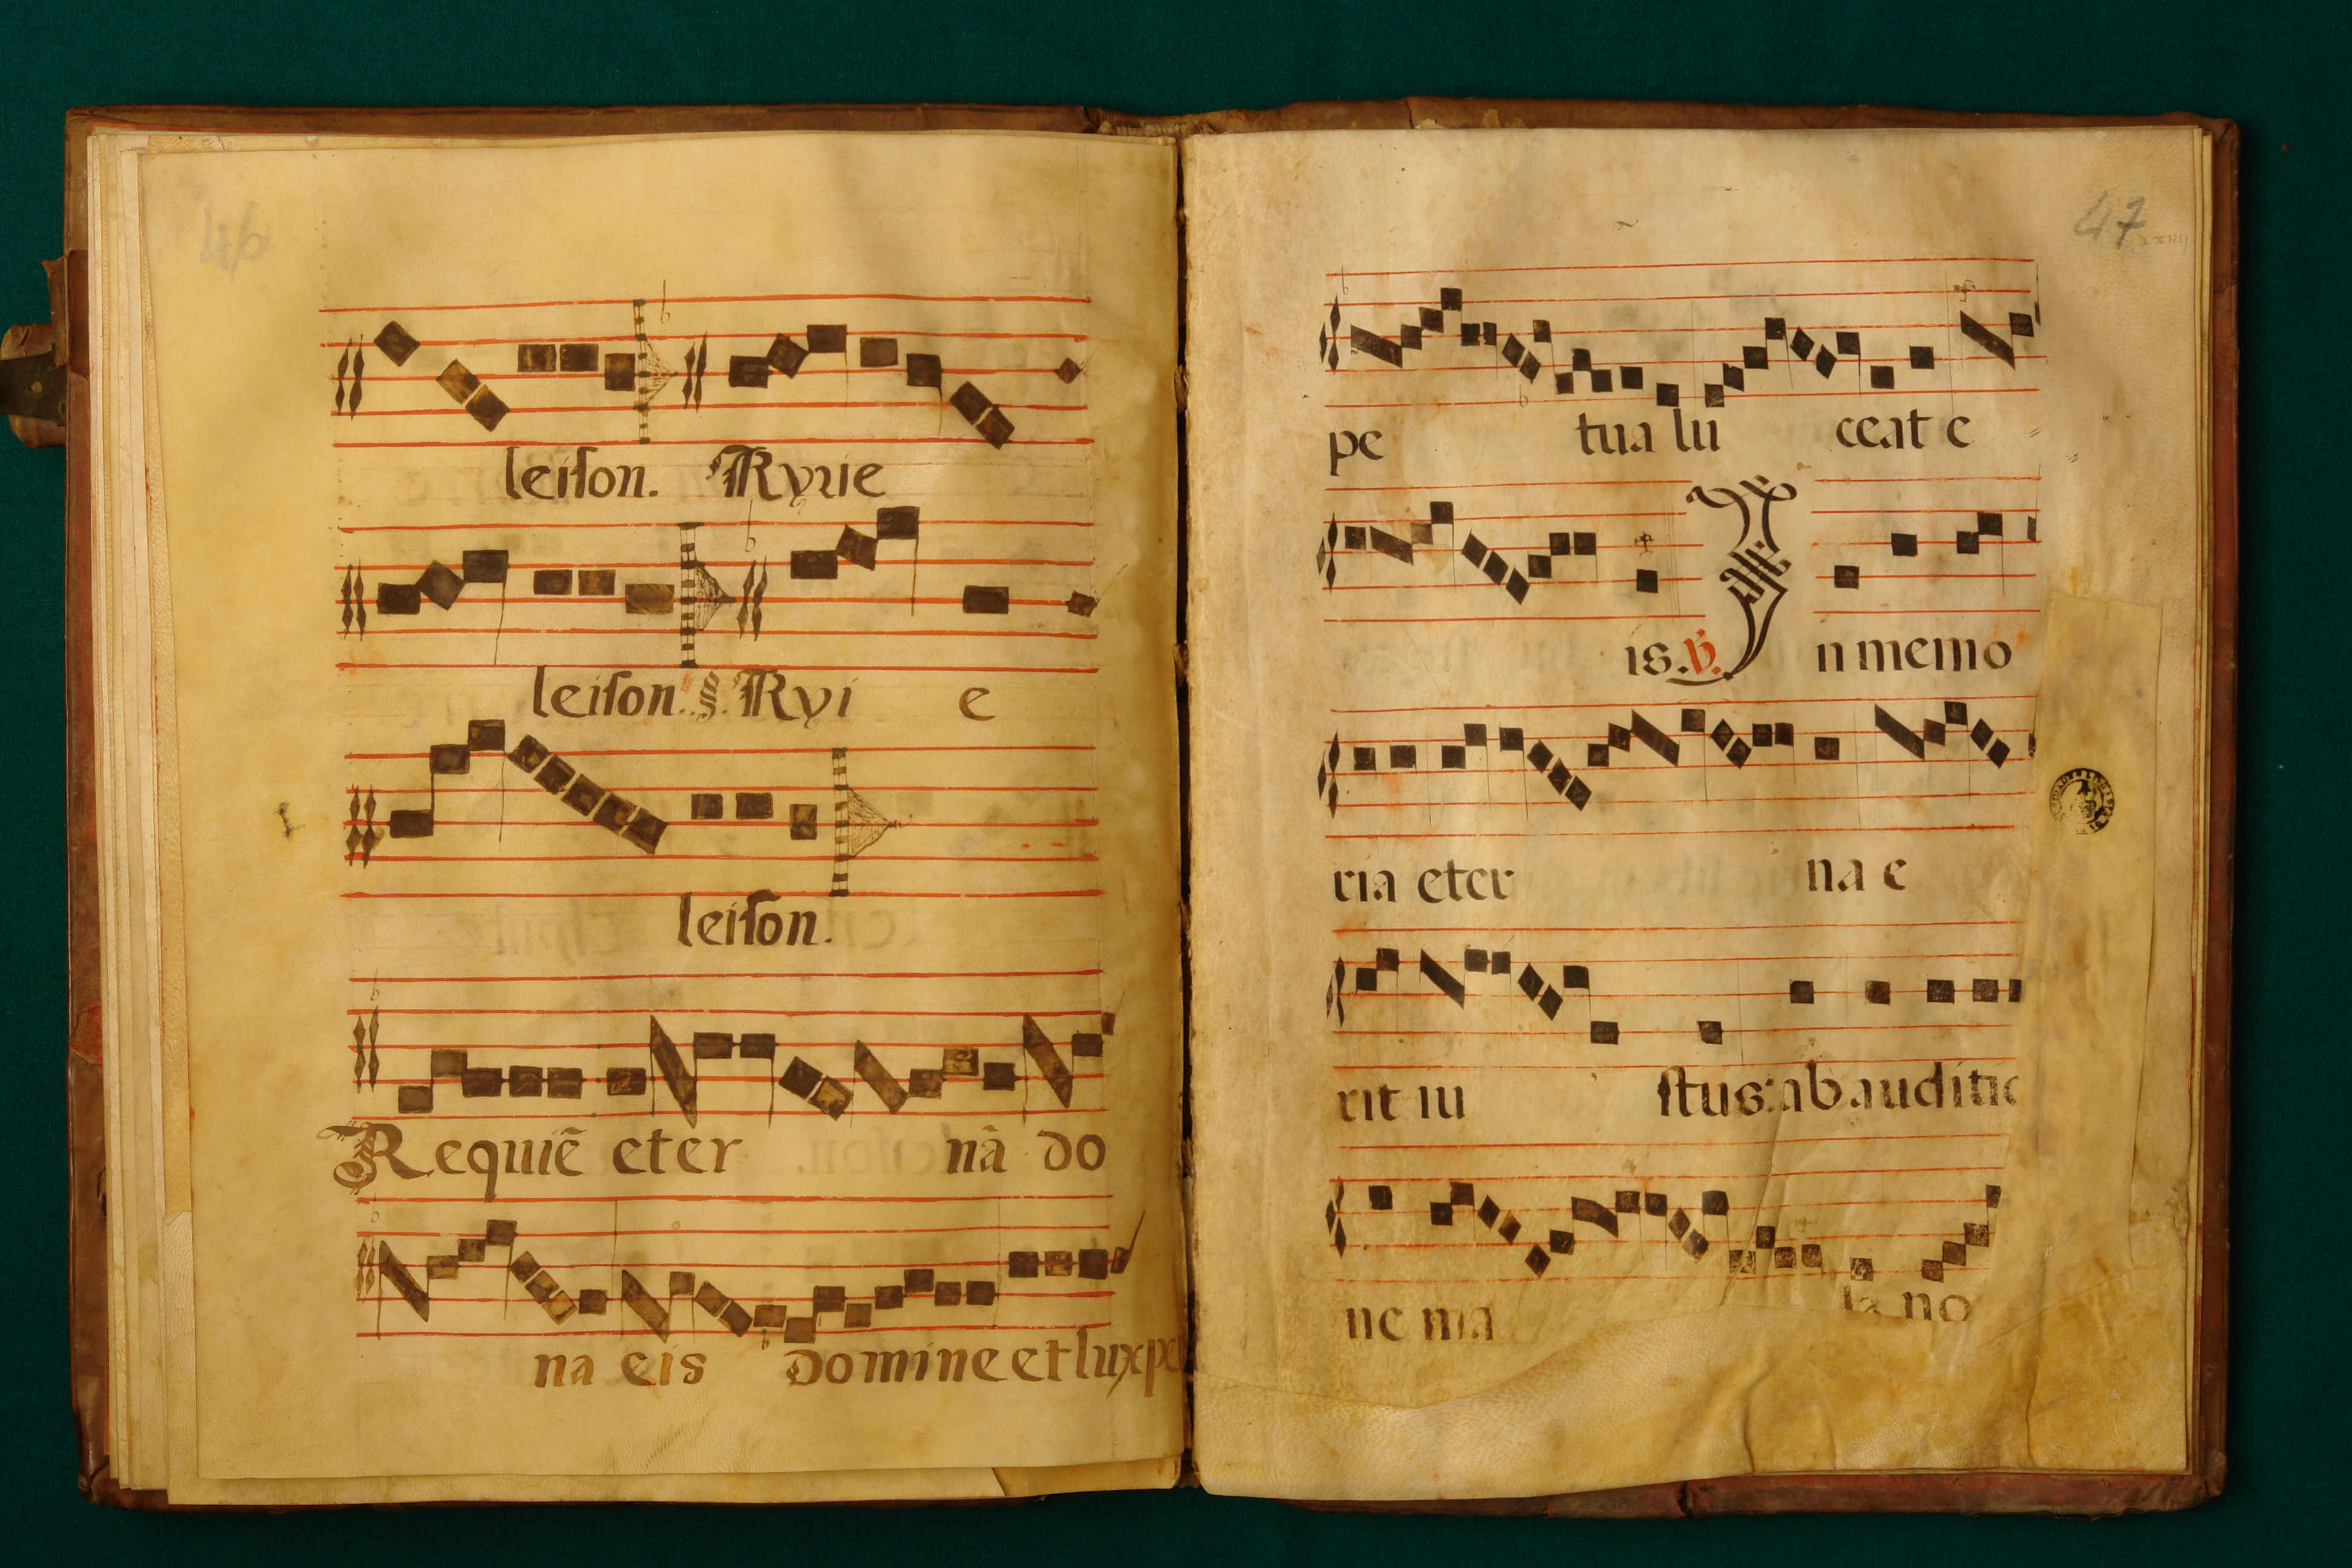 46
leiſon. Kyrie
leiſon. §. Kyi e
leiſon.
Requiē eter nā do
na eis Domine et lux pe
47
pe tua lu ceat e
is. ℣. In memo
ria eter na e
rit iu ſtus: ab auditio
ne ma la no